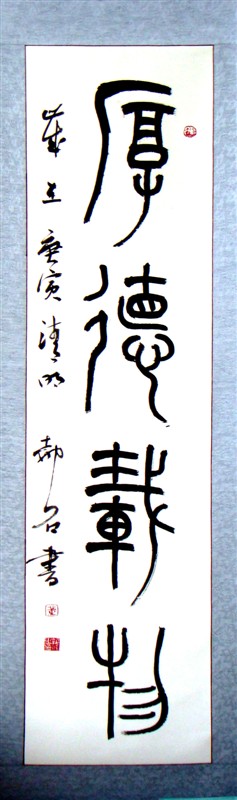 厚德載物
歲在庚寅清明 郝名書